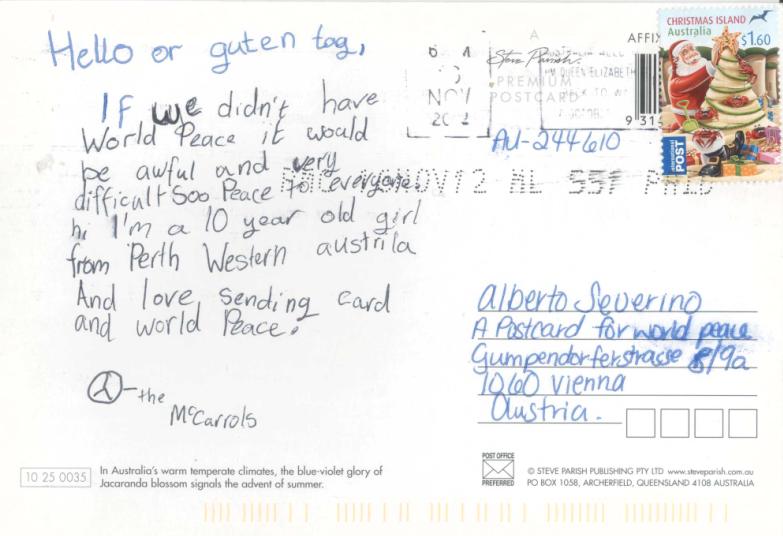 Hello or guten tag,
If we didn't have
World Peace it would
be awful and very
difficult Soo Peace to everyone.
hi I'm a 10 year old girl
from Perth Western austrila
And love sending card
and world Peace.
the
McCarrols
10 25 0035
In Australia's warm temperate climates, the blue-violet glory of
Jacaranda blossom signals the advent of summer.
A
Steve Parish
PREMIUM
POSTCARD
AFFIX
NOV
CHRISTMAS ISLAND
Australia
$1.60
International
POST
AU-244610
NOV12 ML 55F PAID
Alberto Severino
A Postcard for world peace
Gumpendorferstrasse 8/9a
1060 Vienna
Austria.
POST OFFICE
PREFERRED
© STEVE PARISH PUBLISHING PTY LTD www.steveparish.com.au
PO BOX 1058, ARCHERFIELD, QUEENSLAND 4108 AUSTRALIA